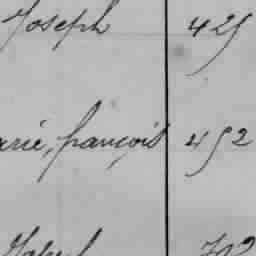 Joseph 425
arie, françois 452